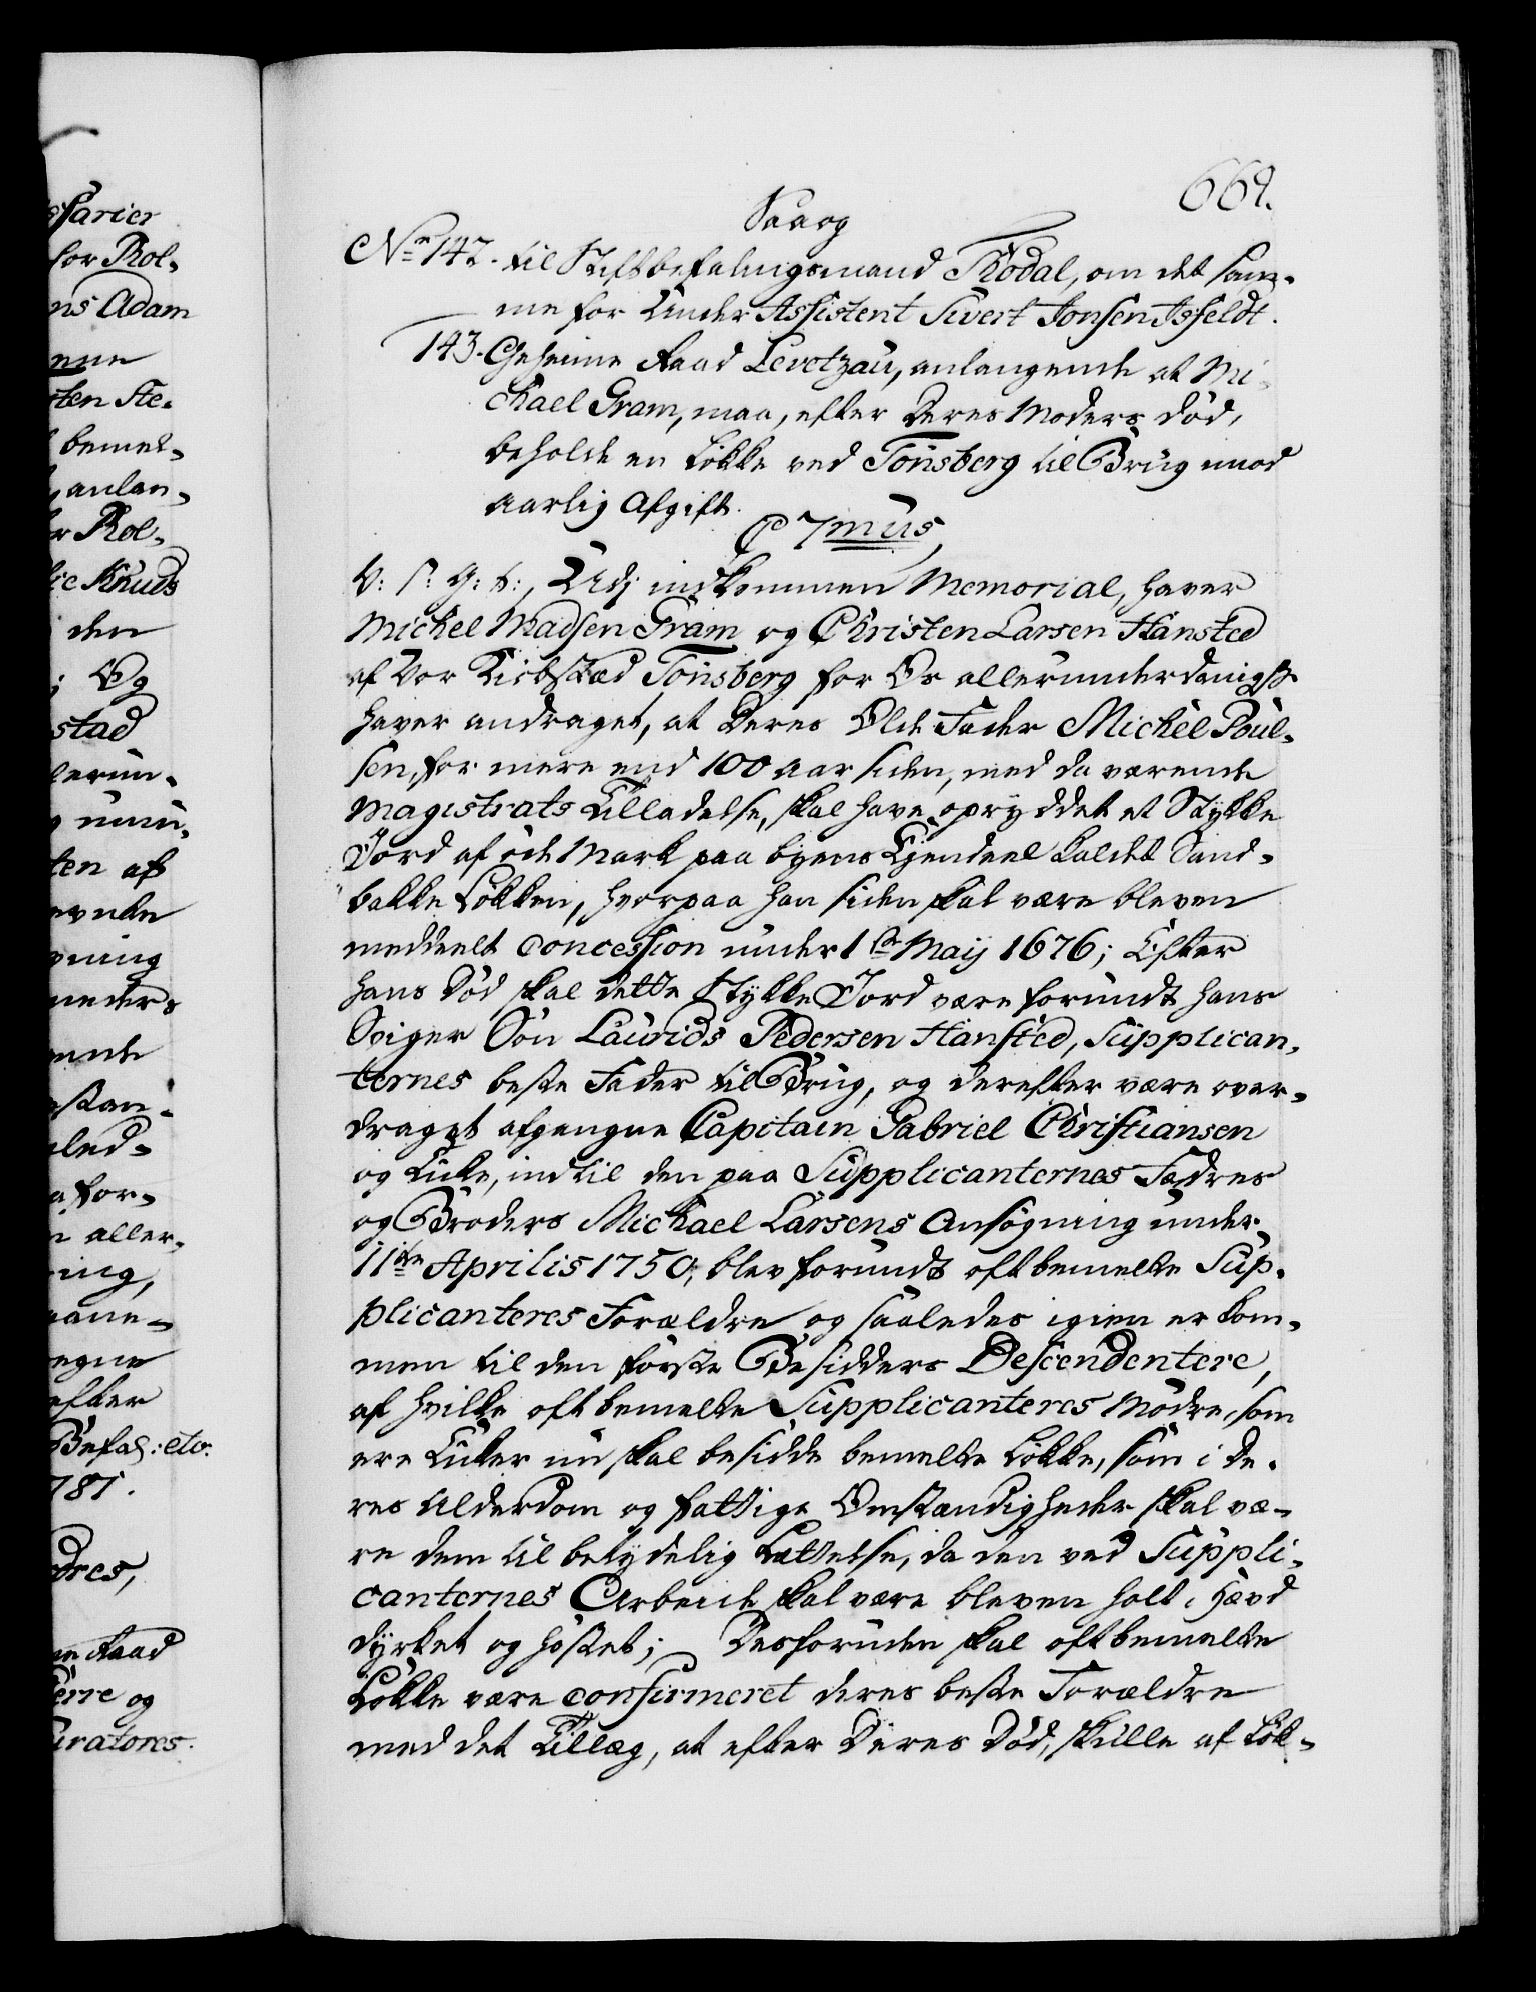 669.
Saa og
No 142. til Stiftbefalingsmand Thodal, om det sam-
me for Under Assistent Sivert Jonsen Isfeldt.
143. Geheime Raad Levetzau, anlangende at Mi-
chael Gram, maa, efter Deres Moders Død,
beholde en Løkke ved Tönsberg til Brug imod
aarlig Afgift.
C 7mus,
V: S: G: T:, Udj indkommen Memorial, haver
Michel Madsen Gram og Christen Larsen Hansted
af Vor Kiøbstæd Tönsberg for Os allerunderdanigst
haver andraget, at Deres Olde Fader Michel Poul-
sen, for mere end 100 Aar siden, med da værende
Magistrats Tilladelse, skal have opryddet et Stykke
Jord af öde Mark paa byens Ejendeel kaldet Sand-
bakke Løkken, hvorpaa han siden skal være bleven
meddeelt Concession under 1ste Maij 1676; Efter
hans Död skal dette Stykke Jord være forundt hans
Sviger Sön Laurids Pedersen Hansted, Supplican-
ternes beste Fader til Brug, og derefter være over-
draget afgangne Capitain Gabriel Christiansen
og Enke, indtil den paa Supplicanternes Fadres
og Broders Michael Larsens Ansögning under
11te Aprilis 1750, blev forundt oftbemelte Sup-
plicanteres Forældre og saaledes igien er kom-
men til den förste Besidders Descendentere,
af hvilke oft bemelte Supplicanteres Mödre, som
ere Enker nu skal besidde bemelte Løkke, som i De-
res Alderdom og fattige Omstændigheder skal væ-
re dem til betydelig Lettelse, da den ved Suppli-
canternes Arbeide skal være bleven holt i Hævd
dyrket og höstet; Desforuden skal oftbemelte
Løkke være confirmeret deres beste Forældre
med det Tillæg, at efter Deres Död, skulle af Løk-